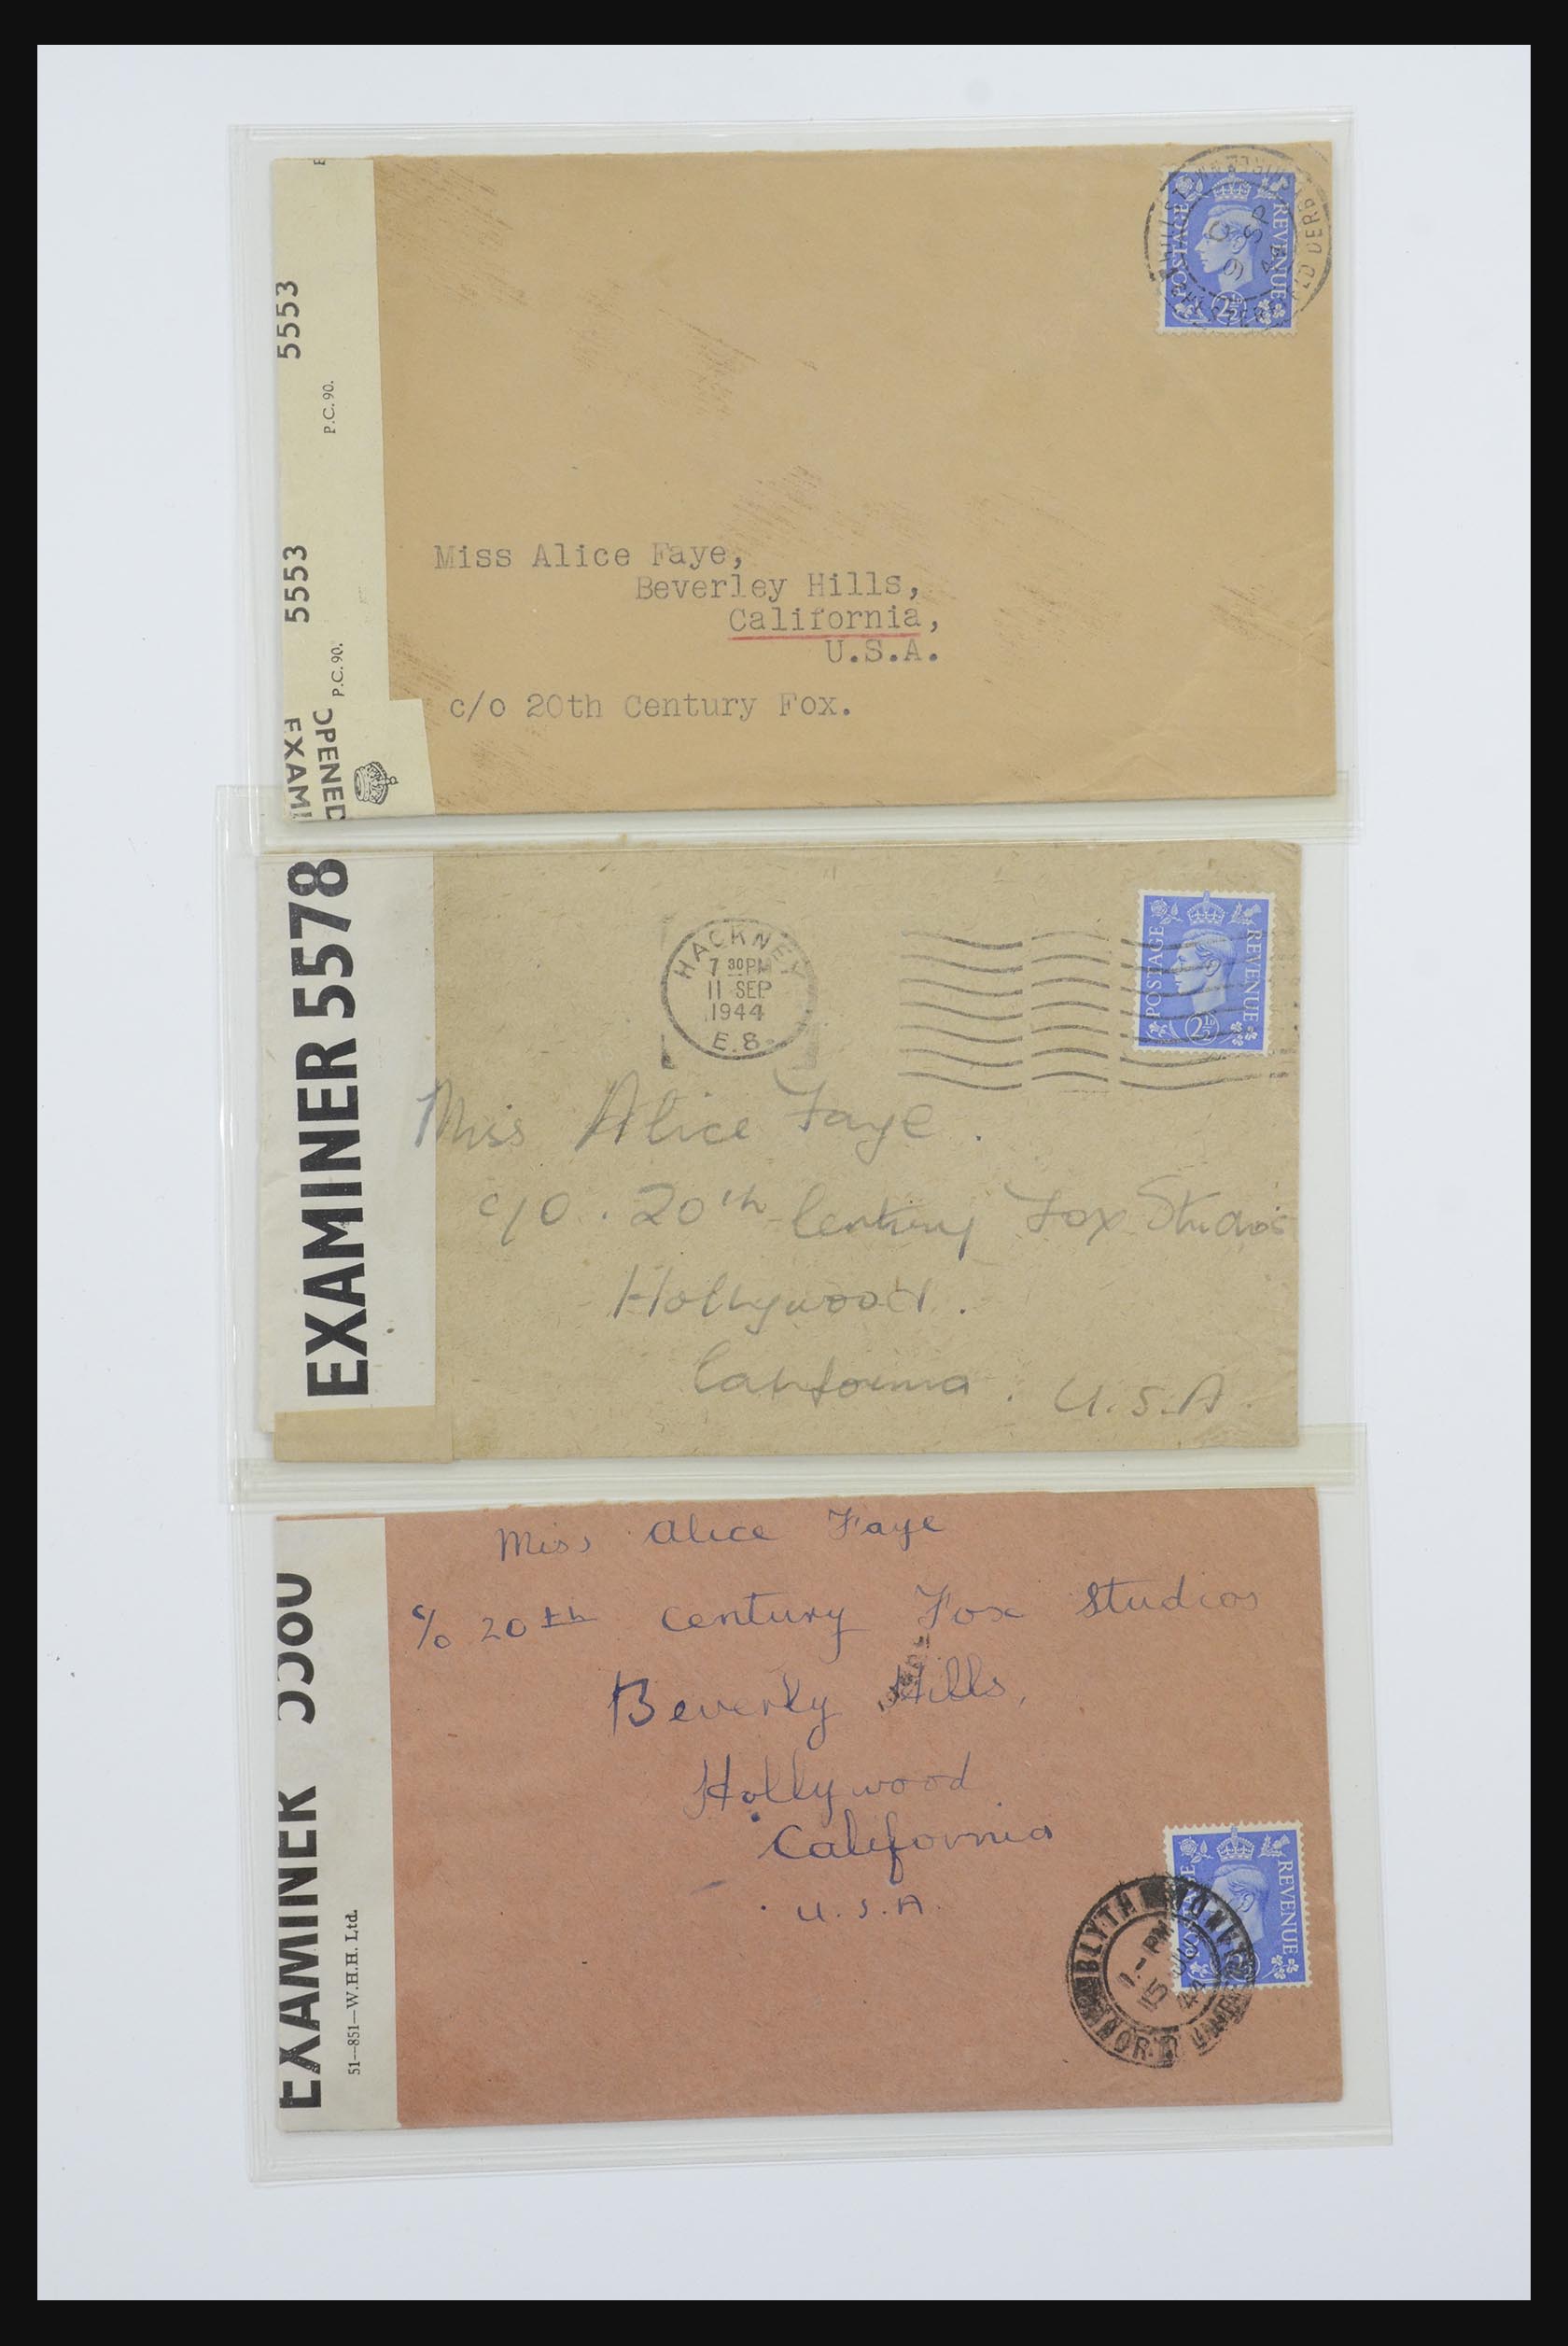 5553
P.C. 90.
5553
P.C. 90.
OPENED
EXAMI
POSTAGE
REVENUE
2½
9 SP
Miss Alice Faye,
Beverley Hills,
California,
U.S.A.
c/o 20th Century Fox.
EXAMINER 5578
HACKNEY
7 30PM
11 SEP
1944
E.8.
POSTAGE
REVENUE
2½
Miss Alice Faye.
c/o. 20th Century Fox Studios
Hollywood.
California. U.S.A.
EXAMINER
51—851—W.H.H. Ltd.
Miss Alice Faye
c/o 20th Century Fox Studios
Beverly Hills,
Hollywood
California
U.S.A.
REVENUE
BLYTH
PM
44